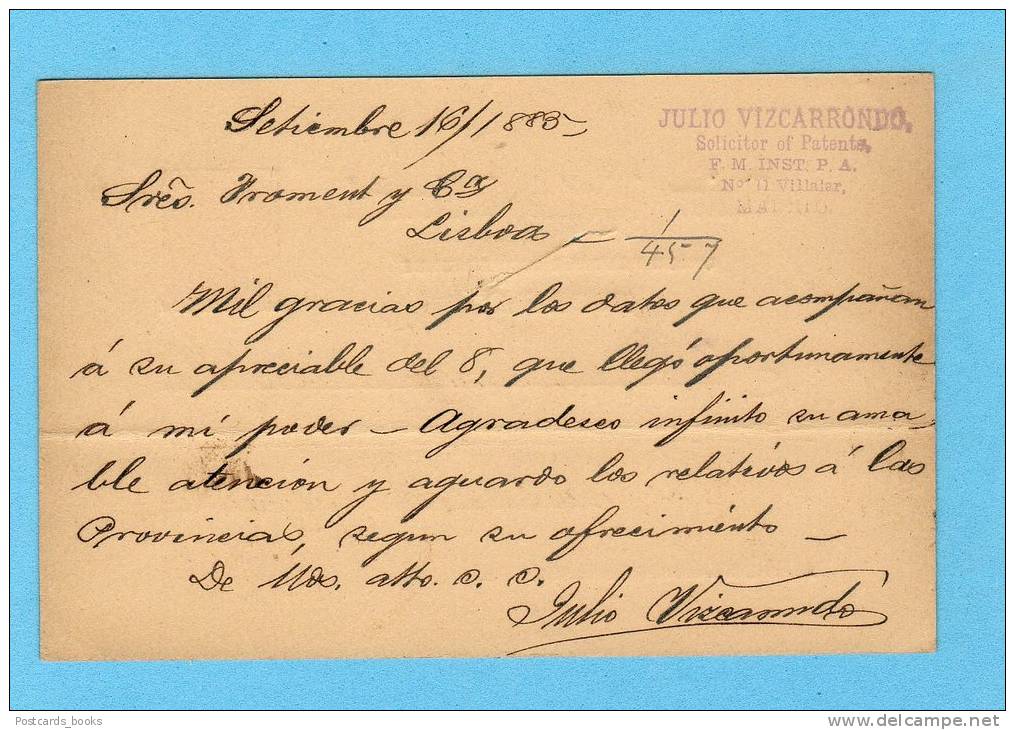 Setiembre 16/1885
JULIO VIZCARRONDO,
Solicitor of Patents,
F. M. INST. P. A.
No. 11 Villalar,
MADRID.
Sres. Froment y Cª
Lisboa –
1/457
Mil gracias por los datos que acompañan
á su apreciable del 8, que llegó oportunamente
á mi poder – Agradesco infinito su ama
ble atención y aguardo los relativos á las
Provincias, segun su ofrecimiento –
De Uds. atto. s. s.
Julio Vizcarrondo
Postcards_books
www.delcampe.net